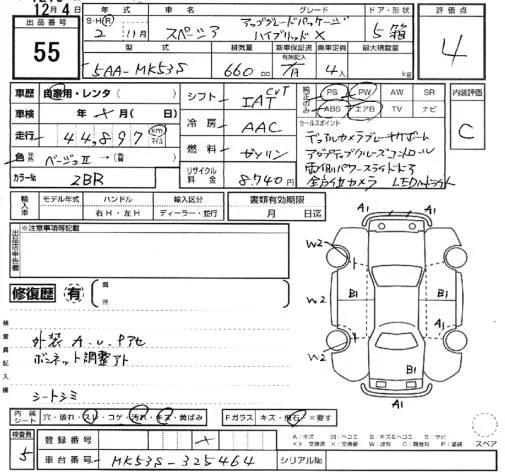 12月4日
出品番号
55
年式
車名
グレード
ドア・形状
S・H・R
2 11月
スペーシア
アップグレードパッケージ
ハイブリッドX
5 箱
評価点
4
型式
排気量
新車保証書
有効記入
乗車定員
最大積載量
5AA-MK53S
660 cc
/月
4人
kg
車歴 自家用・レンタ( )
車検 年 × 月( )日
走行 44,897 km マイル
色 ベージュⅡ →( )
カラー№ ZBR
シフト CVT IAT
冷房 AAC
燃料 ガソリン
リサイクル料金 8,740円
純正のみ
PS PW AW SR
ABS エアB TV ナビ
内装評価
C
セールスポイント
デュアルカメラブレーキサポート
アダプティブクルーズコントロール
両側パワースライドドア
全方位カメラ LEDヘッドライト
輸入車
モデル年式 ハンドル 輸入区分
右H・左H ディーラー・並行
書類有効期限
月 日迄
出品店申告欄
※注意事項等記載
修復歴 有
箇所
検査員記入欄
外装 A.U.Pアセ
ボンネット調整アト
シートシミ
A1
A1
W2
W2
W2
B1
B1
B1
A1
A1
内装シート 穴・破れ・スレ・コゲ・汚れ・キズ・黄ばみ
Fガラス キズ・飛石・×要す
A:キズ
スペア
検査員
5
登録番号 ×
車台番号 MK53S-325464
シリアル№